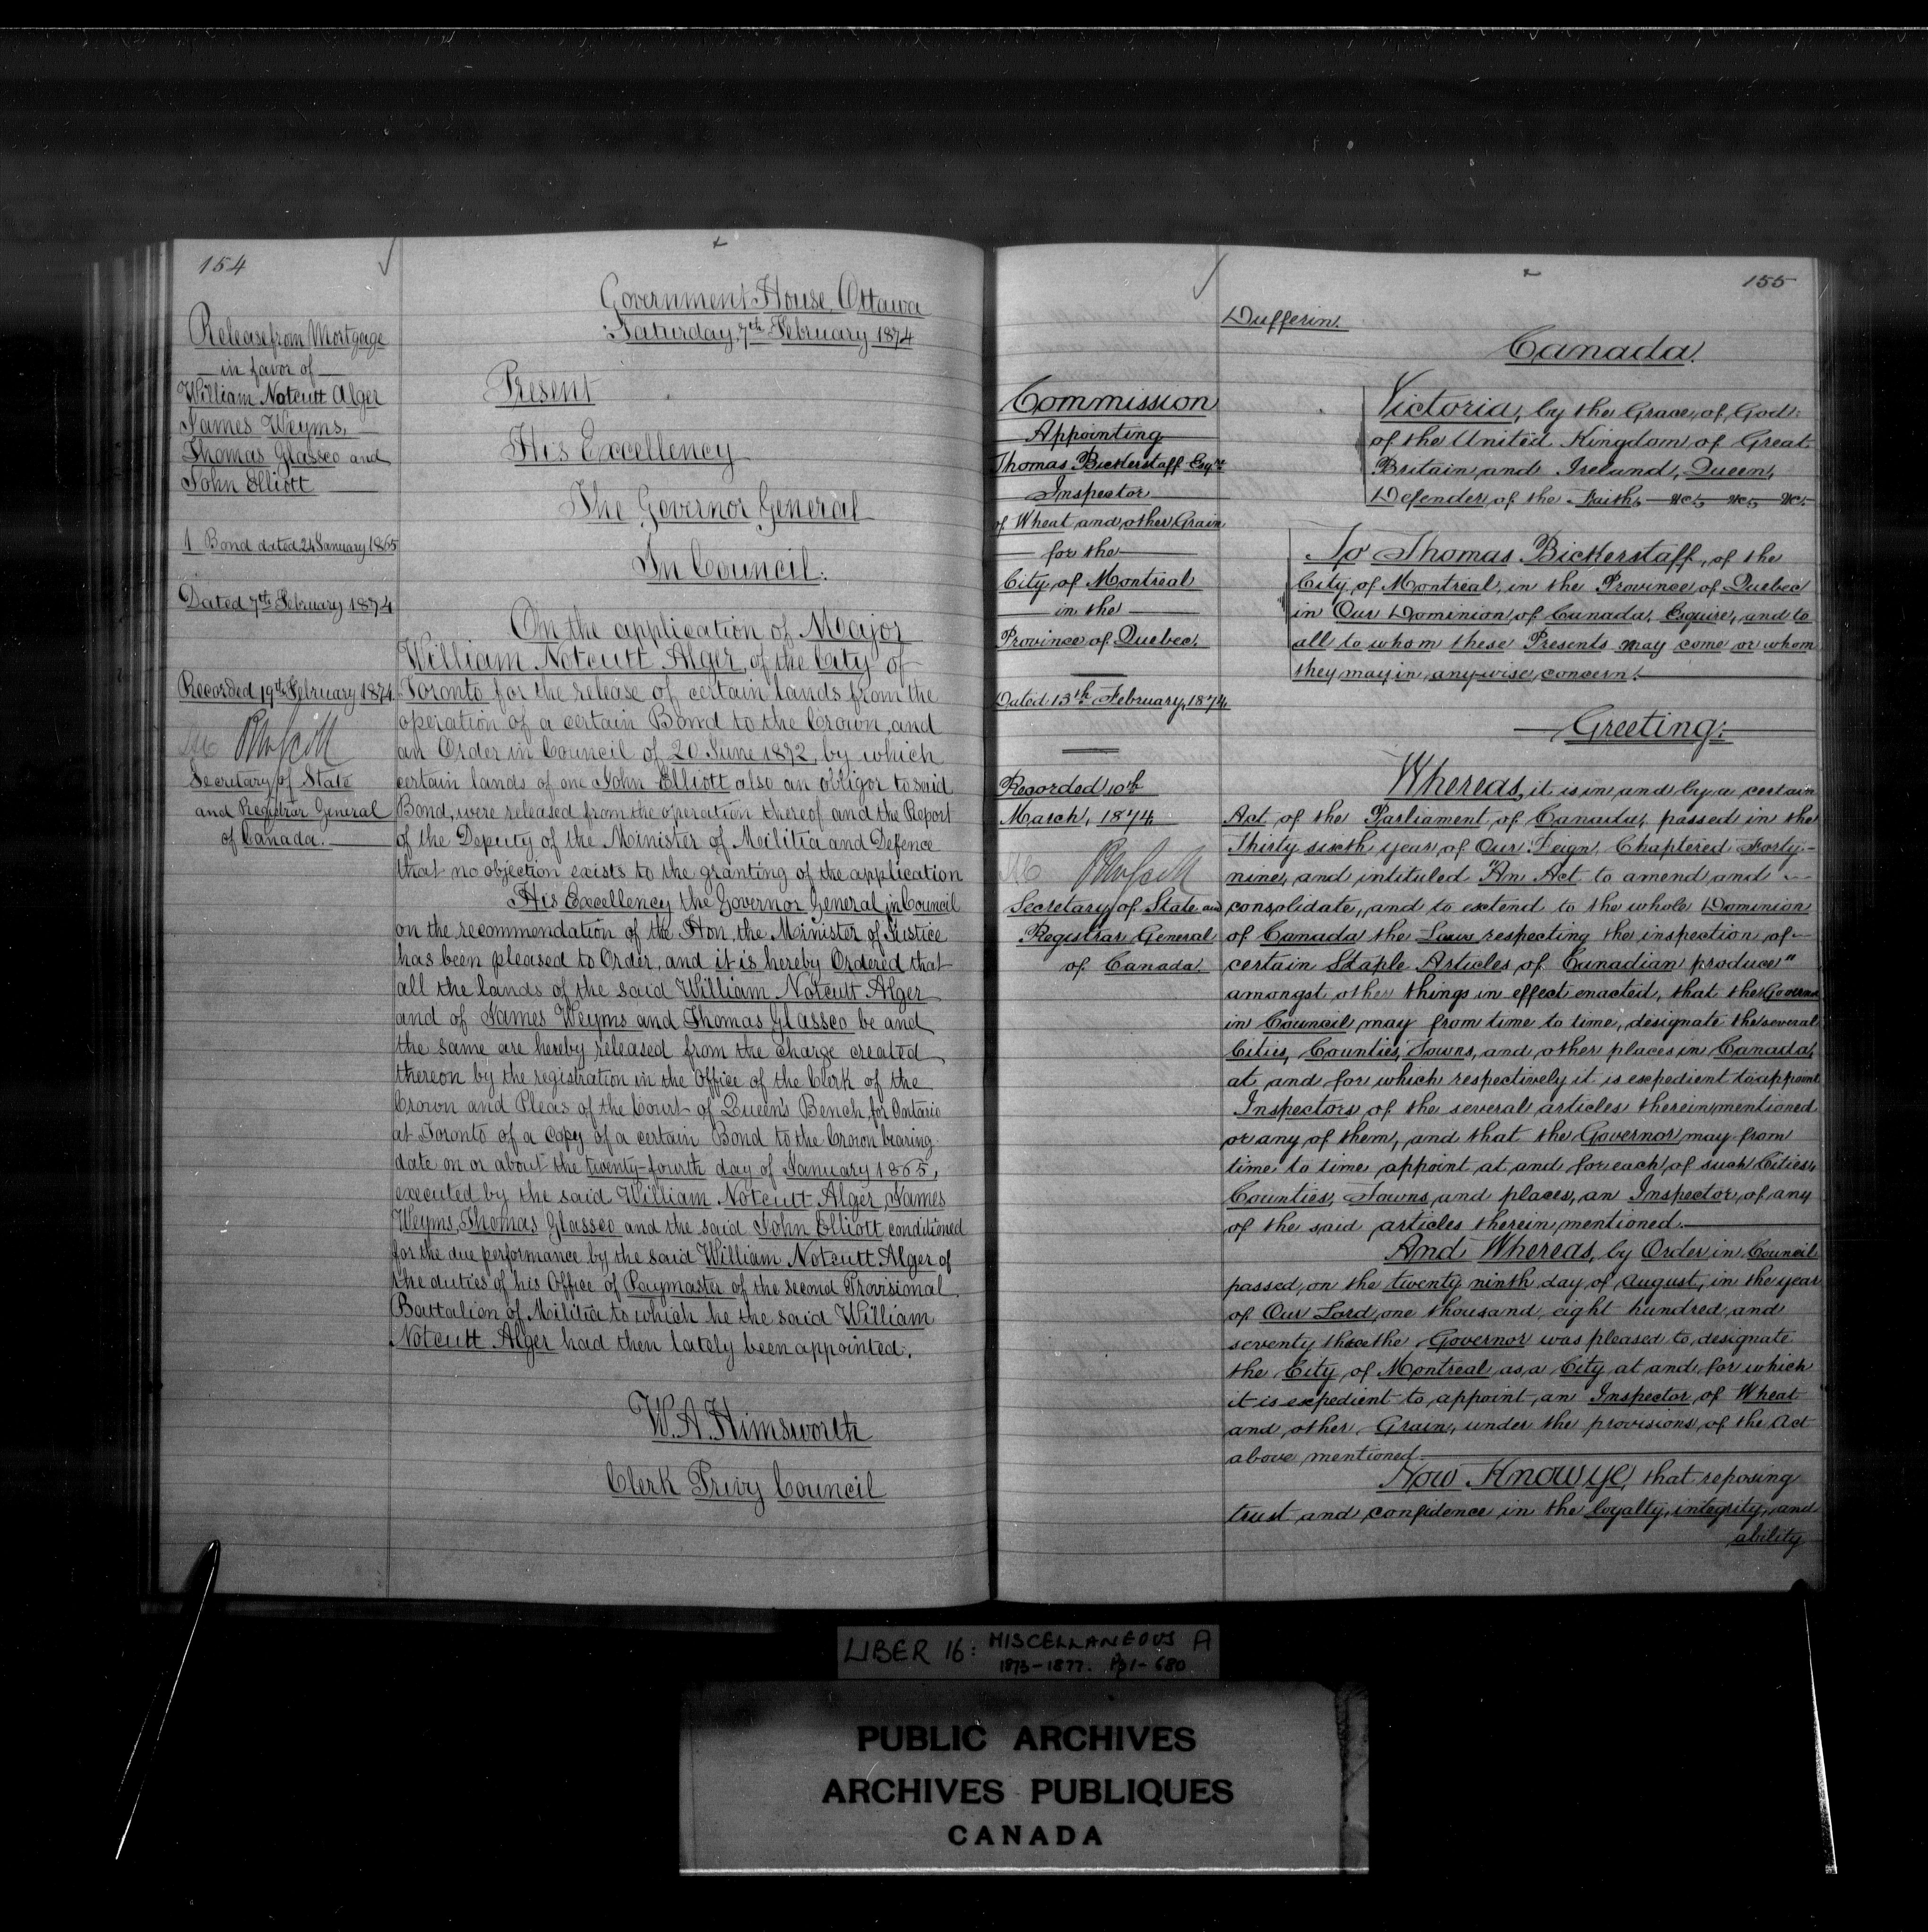 154
Release from Mortgage
in favor of
William Notcutt Alger
James Weyms,
Thomas Glassco and
John Elliott
1 Bond dated 24 January 1865
Dated 7th February 1874
Recorded 19th February 1874
Secretary of State
and Registrar General
of Canada.
Government House, Ottawa
Saturday, 7th February 1874
Present
His Excellency
The Governor General
In Council:
On the application of Major
William Notcutt Alger, of the City of
Toronto for the release of certain lands from the
operation of a certain Bond to the Crown, and
an Order in Council of 20 June 1872, by which
certain lands of one John Elliott also an obligor to said
Bond, were released from the operation thereof and the Report
of the Deputy of the Minister of Militia and Defence
that no objection exists to the granting of the application
His Excellency the Governor General in Council
on the recommendation of the Hon. the Minister of Justice
has been pleased to Order, and it is hereby Ordered that
all the lands of the said William Notcutt Alger
and of James Weyms and Thomas Glassco be and
the same are hereby released from the charge created
thereon by the registration in the Office of the Clerk of the
Crown and Pleas of the Court of Queen's Bench, for Ontario
at Toronto of a copy of a certain Bond to the Crown bearing
date on or about the twenty-fourth day of January 1865,
executed by the said William Notcutt Alger, James
Weyms, Thomas Glassco and the said John Elliott conditioned
for the due performance by the said William Notcutt Alger of
the duties of his Office of Paymaster of the second Provisional
Battalion of Militia to which he the said William
Notcutt Alger had then lately been appointed.
W. A. Himsworth
Clerk Privy Council
155
Commission
Appointing
Thomas Bickerstaff Esqre
Inspector
of Wheat and other Grain
for the
City of Montreal
in the
Province of Quebec.
Dated 13th February, 1874
Recorded 10th
March, 1874
Secretary of State and
Registrar General
of Canada.
Dufferin.
Canada.
Victoria, by the Grace, of God
of the United Kingdom of Great
Britain and Ireland, Queen,
Defender of the Faith, &c, &c, &c.
To Thomas Bickerstaff, of the
City of Montreal, in the Province of Quebec
in Our Dominion of Canada, Esquire, and to
all to whom these Presents may come or whom
they may in anywise concern.
Greeting:
Whereas, it is in and by a certain
Act of the Parliament of Canada, passed in the
Thirty sixth year of Our Reign, Chaptered Forty-
nine, and intituled "An Act to amend and
consolidate, and to extend to the whole Dominion
of Canada the Laws respecting the inspection of
certain Staple Articles of Canadian produce"
amongst other things in effect enacted, that the Governor
in Council may from time to time, designate the several
Cities, Counties, Towns, and other places in Canada,
at and for which respectively it is expedient to appoint
Inspectors of the several articles therein mentioned
or any of them, and that the Governor may from
time to time appoint at and for each of such Cities,
Counties, Towns and places, an Inspector of any
of the said articles therein mentioned.
And Whereas, by Order in Council
passed on the twenty ninth day of August, in the year
of Our Lord, one thousand eight hundred and
seventy three the Governor was pleased to designate
the City of Montreal as a City at and for which
it is expedient to appoint an Inspector of Wheat
and other Grain, under the provisions of the Act
above mentioned.
Now Know ye, that reposing
trust and confidence in the loyalty, integrity, and
ability
LIBER 16: MISCELLANEOUS A
1873-1877. Pg 1-680
PUBLIC ARCHIVES
ARCHIVES PUBLIQUES
CANADA